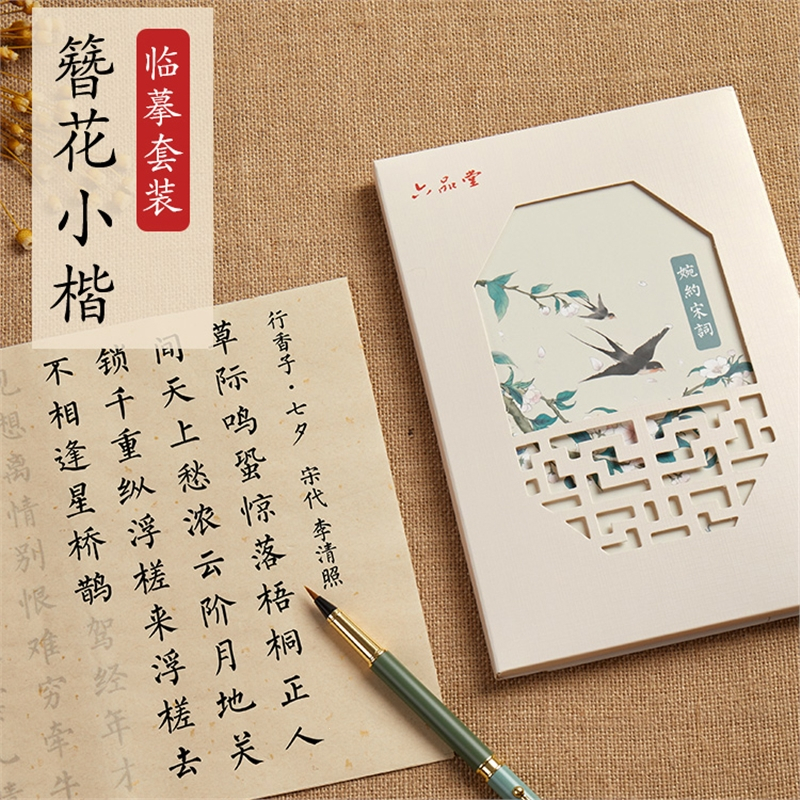 簪花小楷
临摹套装
六品堂
婉约宋詞
行香子·七夕 宋代 李清照
草际鸣蛩惊落梧桐正人
间天上愁浓云阶月地关
锁千重纵浮槎来浮槎去
不相逢星桥鹊驾经年才
见想离情别恨难穷牵牛